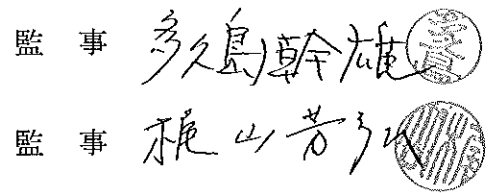 監事 多久島幹雄
監事 梶山芳弘